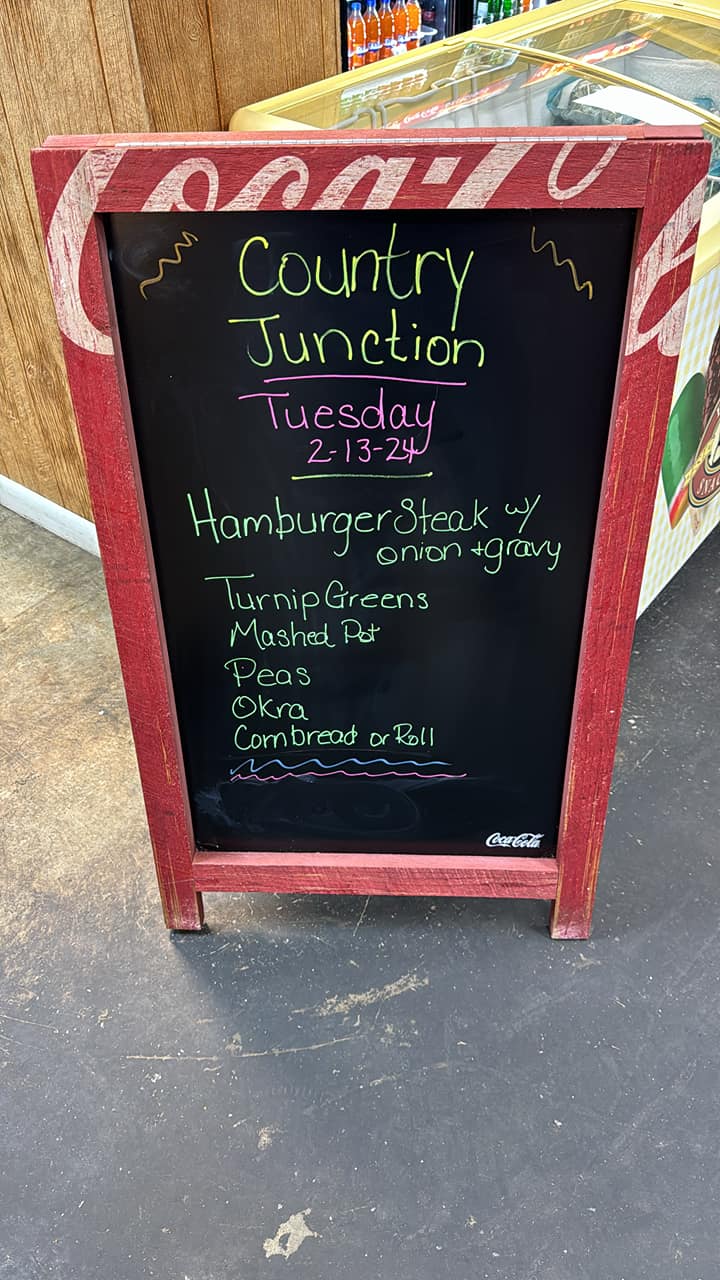 Coca-Co
Country
Junction
Tuesday
2-13-24
Hamburger Steak w/
onion + gravy
Turnip Greens
Mashed Pot
Peas
Okra
Cornbread or Roll
Coca-Cola